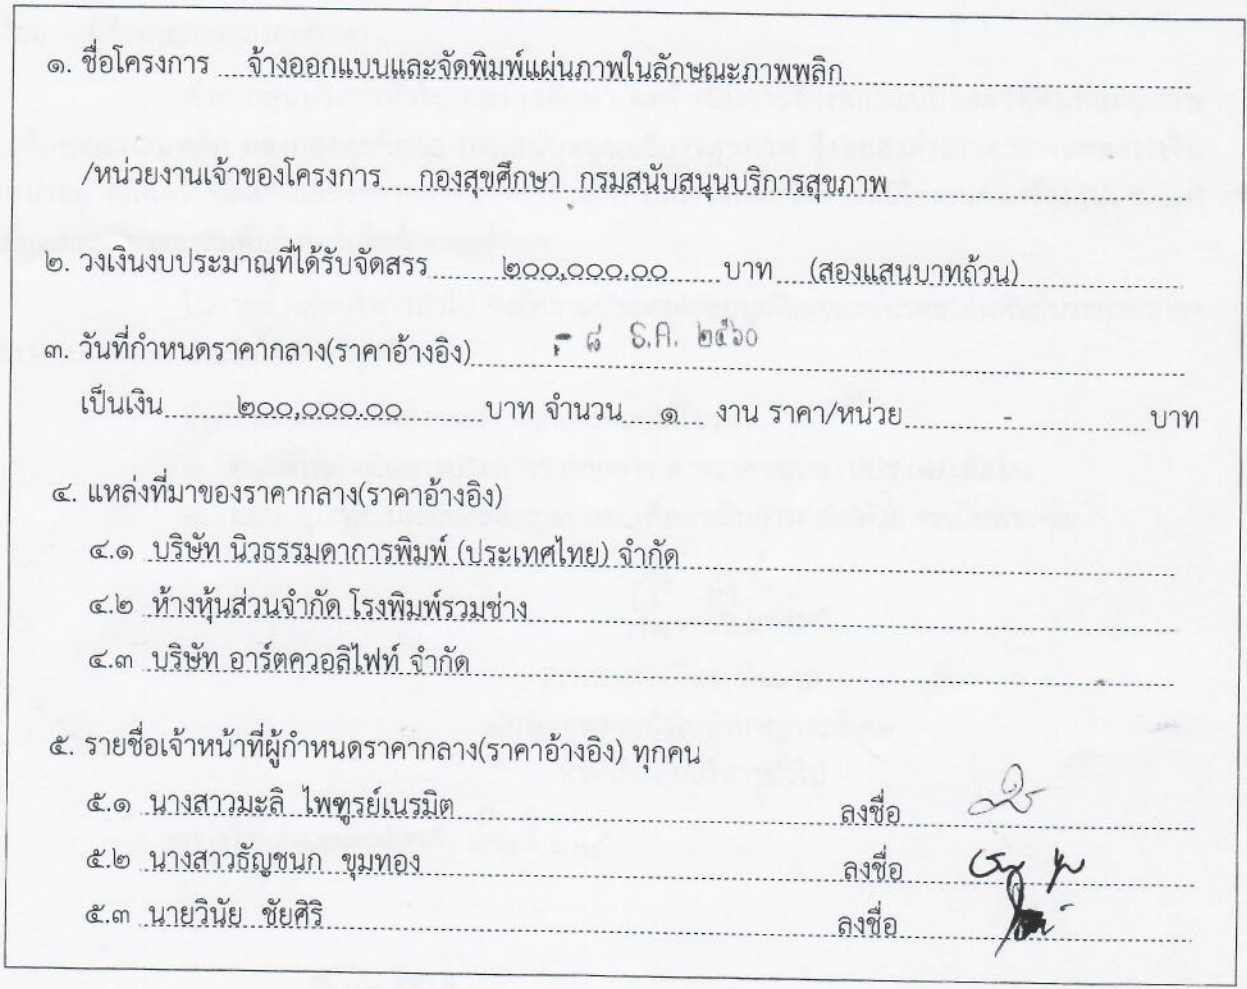 ๑. ชื่อโครงการ จ้างออกแบบและจัดพิมพ์แผ่นภาพในลักษณะภาพพลิก
/หน่วยงานเจ้าของโครงการ กองสุขศึกษา กรมสนับสนุนบริการสุขภาพ
๒. วงเงินงบประมาณที่ได้รับจัดสรร ๒๐๐,๐๐๐.๐๐ บาท (สองแสนบาทถ้วน)
๓. วันที่กำหนดราคากลาง(ราคาอ้างอิง) - ๘ ธ.ค. ๒๕๖๐
เป็นเงิน ๒๐๐,๐๐๐.๐๐ บาท จำนวน ๑ งาน ราคา/หน่วย - บาท
๔. แหล่งที่มาของราคากลาง(ราคาอ้างอิง)
๔.๑ บริษัท นิวธรรมดาการพิมพ์ (ประเทศไทย) จำกัด
๔.๒ ห้างหุ้นส่วนจำกัด โรงพิมพ์รวมช่าง
๔.๓ บริษัท อาร์ตควอลิไฟท์ จำกัด
๕. รายชื่อเจ้าหน้าที่ผู้กำหนดราคากลาง(ราคาอ้างอิง) ทุกคน
๕.๑ นางสาวมะลิ ไพฑูรย์เนรมิต ลงชื่อ
๕.๒ นางสาวธัญชนก ขุมทอง ลงชื่อ
๕.๓ นายวินัย ชัยศิริ ลงชื่อ